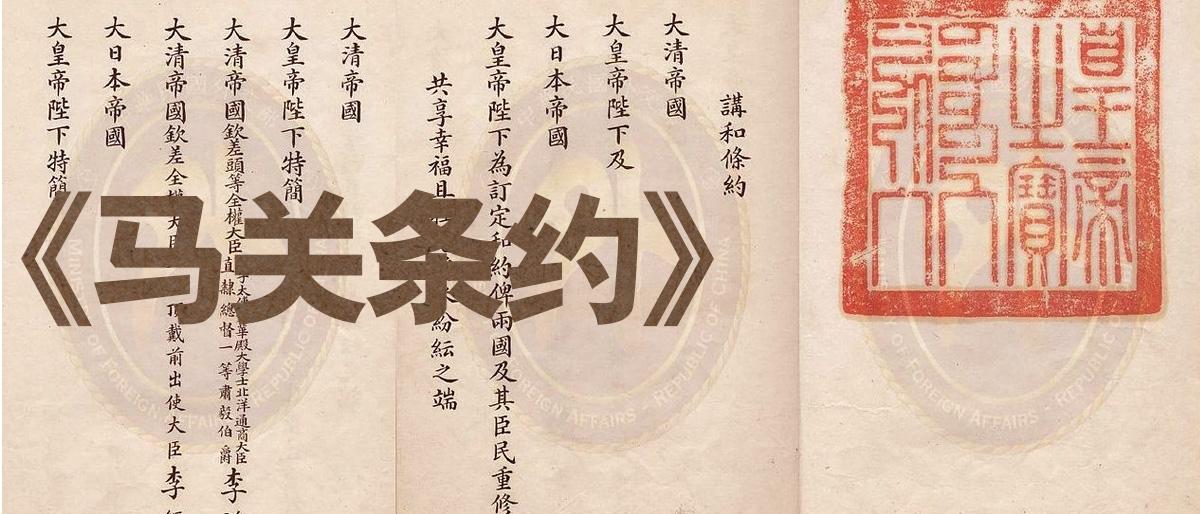 皇帝
之寶
講和條約
大清帝國
大皇帝陛下及
大日本帝國
大皇帝陛下為訂定和約俾兩國及其臣民重修
共享幸福且 紛紜之端
大清帝國
大皇帝陛下特簡
大清帝國欽差頭等全權大臣 華殿大學士北洋通商大臣
直隸總督一等肅毅伯爵李
大清帝國欽差全權大臣 頂戴前出使大臣李
大日本帝國
大皇帝陛下特簡
《马关条约》
OF FOREIGN AFFAIRS REPUBLIC OF CHINA
OF FOREIGN AFFAIRS REPUBLIC OF CHINA
OF FOREIGN AFFAIRS REPUBLIC OF